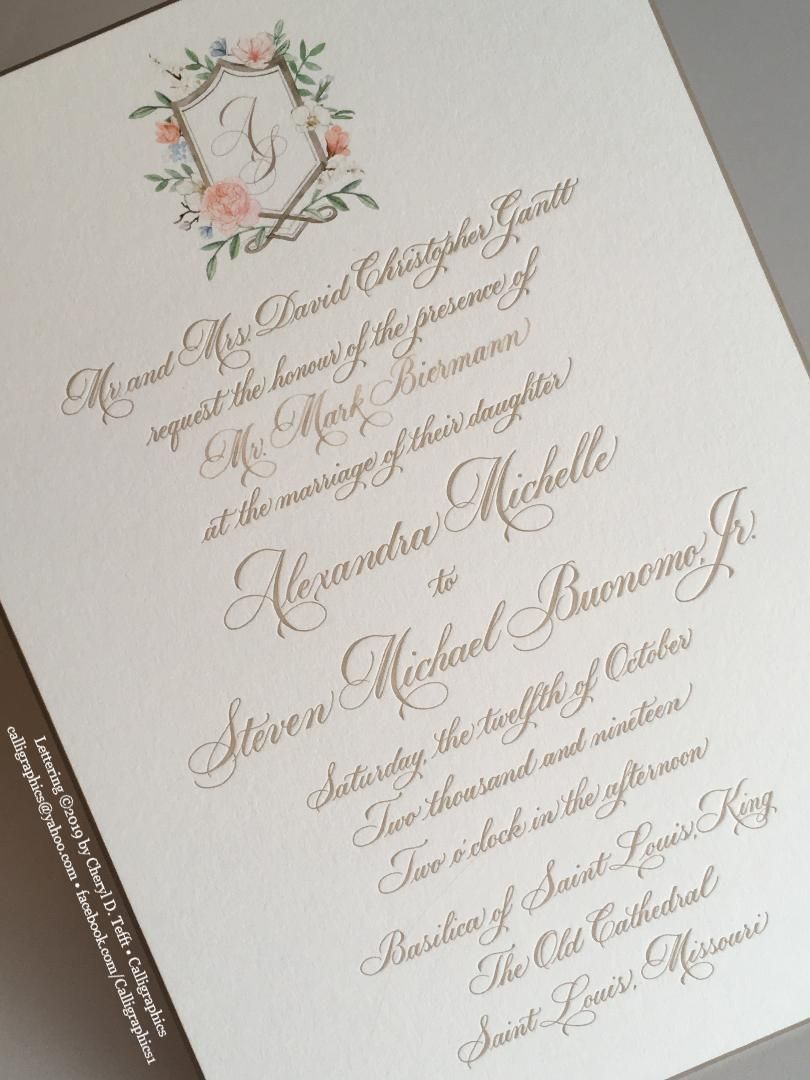 AS
Mr. and Mrs. David Christopher Gantt
request the honour of the presence of
Mr. Mark Biermann
at the marriage of their daughter
Alexandra Michelle
to
Steven Michael Buonomo, Jr.
Saturday, the twelfth of October
Two thousand and nineteen
Two o'clock in the afternoon
Basilica of Saint Louis, King
The Old Cathedral
Saint Louis, Missouri
Lettering ©2019 by Cheryl D. Tefft • Calligraphics
calligraphics@yahoo.com • facebook.com/Calligraphics1